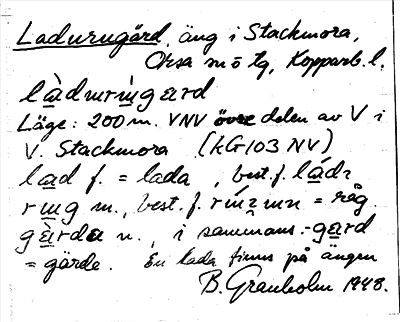 Ladurugård, äng i Stackmora,
Orsa sn o tg, Kopparb. l.
làdɯrɯ̀gard
Läge: 200 m. VNV övre delen av V i
V. Stackmora (kG103 NV)
lad f. = lada, best. f.
m., best. f. = råg.
n., i sammans. -gard
= gärde. En lada finns på ängen
B. Granholm 1948.